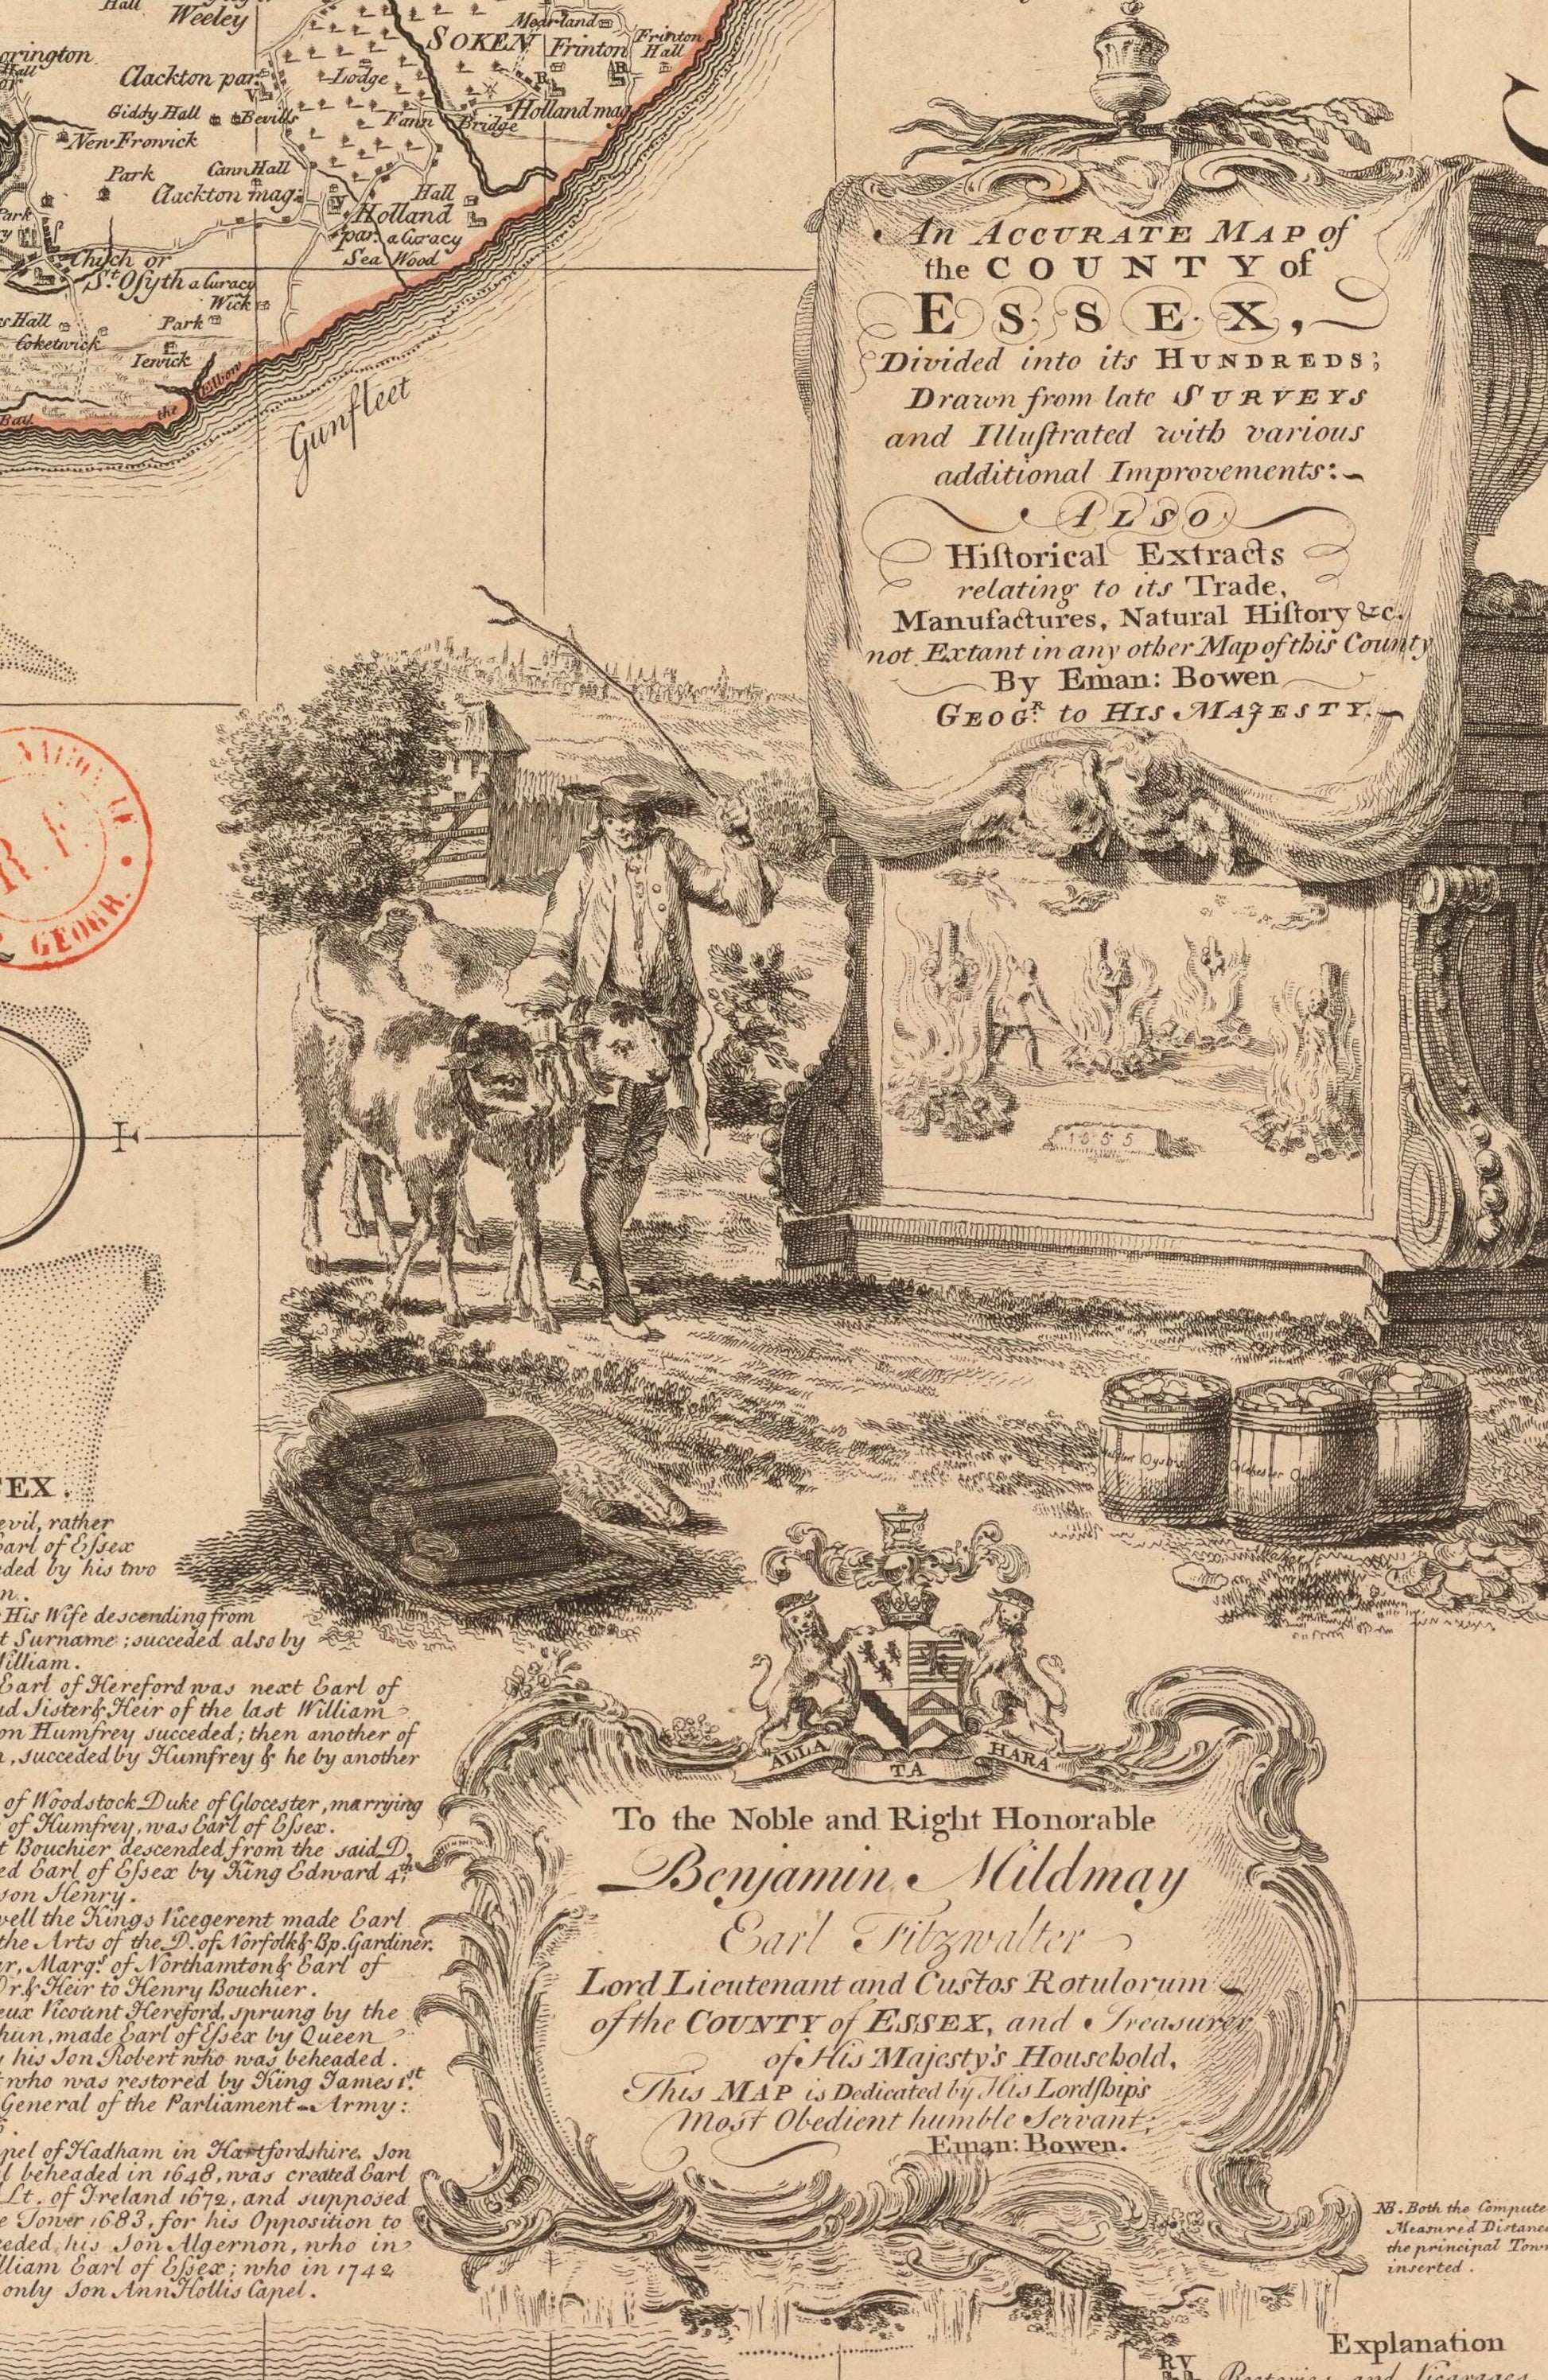 Hall
Weeley
Mearland
SOKEN
Frinton
Frinton
Hall
orington
Hall
Clackton par.
V
Lodge
R
R
Giddy Hall
Bevills
Fann
Bridge
Holland mag
New Frowick
Park
Cann Hall
Clackton mag:
V
Hall
Holland
par. a Curacy
Sea Wood
Park
Chich or
St. Osyth a Curacy
Wick
s Hall
Park
Coketwick
Iewick
the Elbow
Bay
Gunfleet
An ACCURATE MAP of
the COUNTY of
ESSEX,
Divided into its HUNDREDS;
Drawn from late SURVEYS
and Illuſtrated with various
additional Improvements:
ALSO
Hiſtorical Extracts
relating to its Trade,
Manufactures, Natural Hiſtory &c.
not Extant in any other Map of this County
By Eman: Bowen
GEOGR. to HIS MAJESTY.
R.F.
GEOGR.
1555
Colchester Oy
E
SEX.
evil, rather
Earl of Eſsex
eded by his two
n.
His Wife descending from
t Surname; succeded also by
William.
Earl of Hereford was next Earl of
nd Sister & Heir of the last William
on Humfrey succeded; then another of
, succeded by Humfrey & he by another
of Woodstock Duke of Glocester, marrying
of Humfrey, was Earl of Eſsex.
t Bouchier descended from the said D.
ed Earl of Eſsex by King Edward 4th.
son Henry.
well the Kings Vicegerent made Earl
the Arts of the D. of Norfolk & Bp. Gardiner.
r, Marqs. of Northamton & Earl of
Dr. & Heir to Henry Bouchier.
eux Vicount Hereford, sprung by the
hun, made Earl of Eſsex by Queen
his Son Robert who was beheaded.
t who was restored by King James 1st.
General of the Parliament-Army:
pel of Hadham in Hartfordshire, Son
l beheaded in 1648, was created Earl
Lt. of Ireland 1672, and supposed
e Tower 1683, for his Opposition to
ceded, his Son Algernon, who in
lliam Earl of Eſsex; who in 1742
only Son Ann Hollis Capel.
ALLA TA HARA
To the Noble and Right Honorable
Benjamin Mildmay
Earl Fitzwalter
Lord Lieutenant and Custos Rotulorum
of the COUNTY of ESSEX, and Treasurer
of His Majesty's Household,
This MAP is Dedicated by His Lordſhip's
Most Obedient humble Servant,
Eman: Bowen.
NB. Both the Compute
Measured Distanc
the principal Town
inserted.
Explanation
RV
Rectories and Vicarages